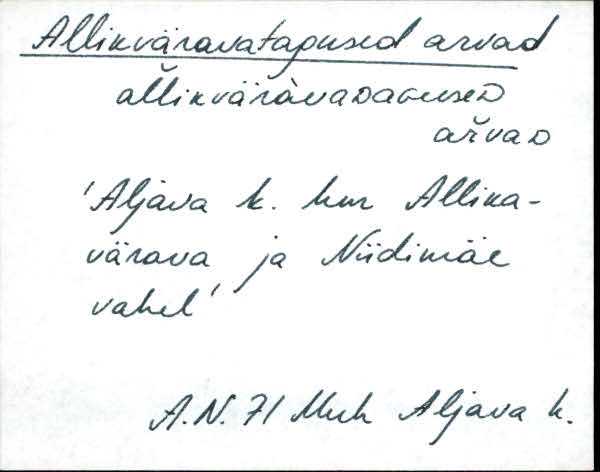 Allikväravatagused arvad
ał̆likväràvaᴅaɢuseᴅ
ař̆vaᴅ
'Aljava k. hm Allika-
värava ja Niidimäe
vahel'
A.N. 71 Muh Aljava k.